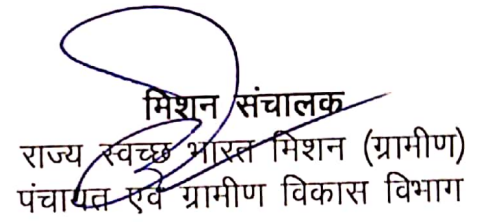 मिशन संचालक
राज्य स्वच्छ भारत मिशन (ग्रामीण)
पंचायत एवं ग्रामीण विकास विभाग